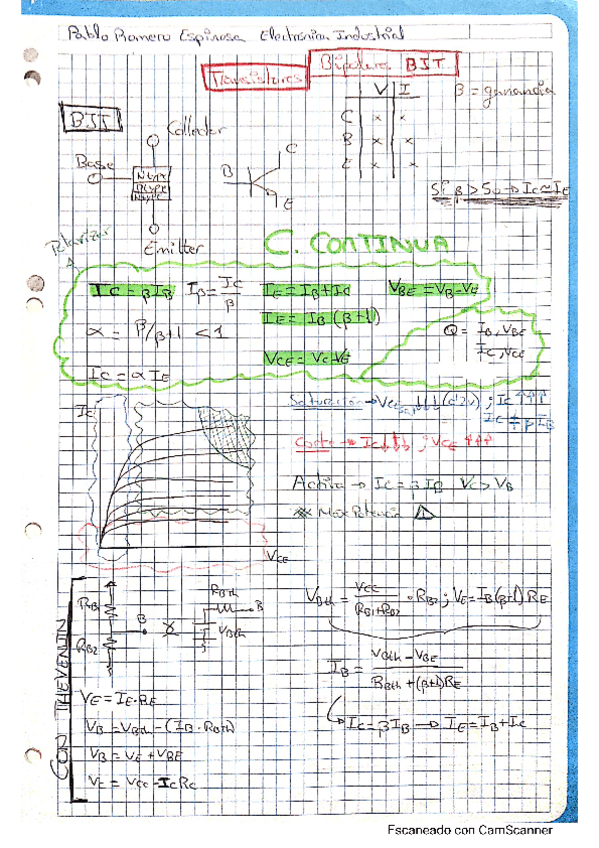 Pablo Romero Espinosa Electronica Industrial
Transistores Bipolares BJT
V I
C x
B x x
E x x
β = ganancia
BJT
Collector
Base
N type
P type
N type
Emitter
B C E
Si β > 50 → Ic ≈ IE
Polarizar
C. CONTINUA
Ic = βIB IB = Ic/β IE = IB + Ic VBE = VB - VE
α = β/β+1 < 1 IE = IB (β+1)
Ic = α IE VCE = Vc - VE
Q = IB, VBE
Ic, VCE
Ic
VCE
Saturación → VCEsat ↓↓↓ (0'2V) ; Ic ↑↑↑
Ic ≠ β IB
Corte → Ic ↓↓↓ ; VCE ↑↑↑
Activa → Ic = β IB Vc > VB
Max Potencia
CON THEVENIN
RB1
RB2
B
RBth
B
VBth
VBth = Vcc / RB1+RB2 · RB2 ; VE = IB(β+1) RE
IB = VBth - VBE / RBth + (β+1)RE
Ic = β IB → IE = IB + Ic
VE = IE · RE
VB = VBth - (IB · RBth)
VB = VE + VBE
Vc = Vcc - Ic Rc
Escaneado con CamScanner